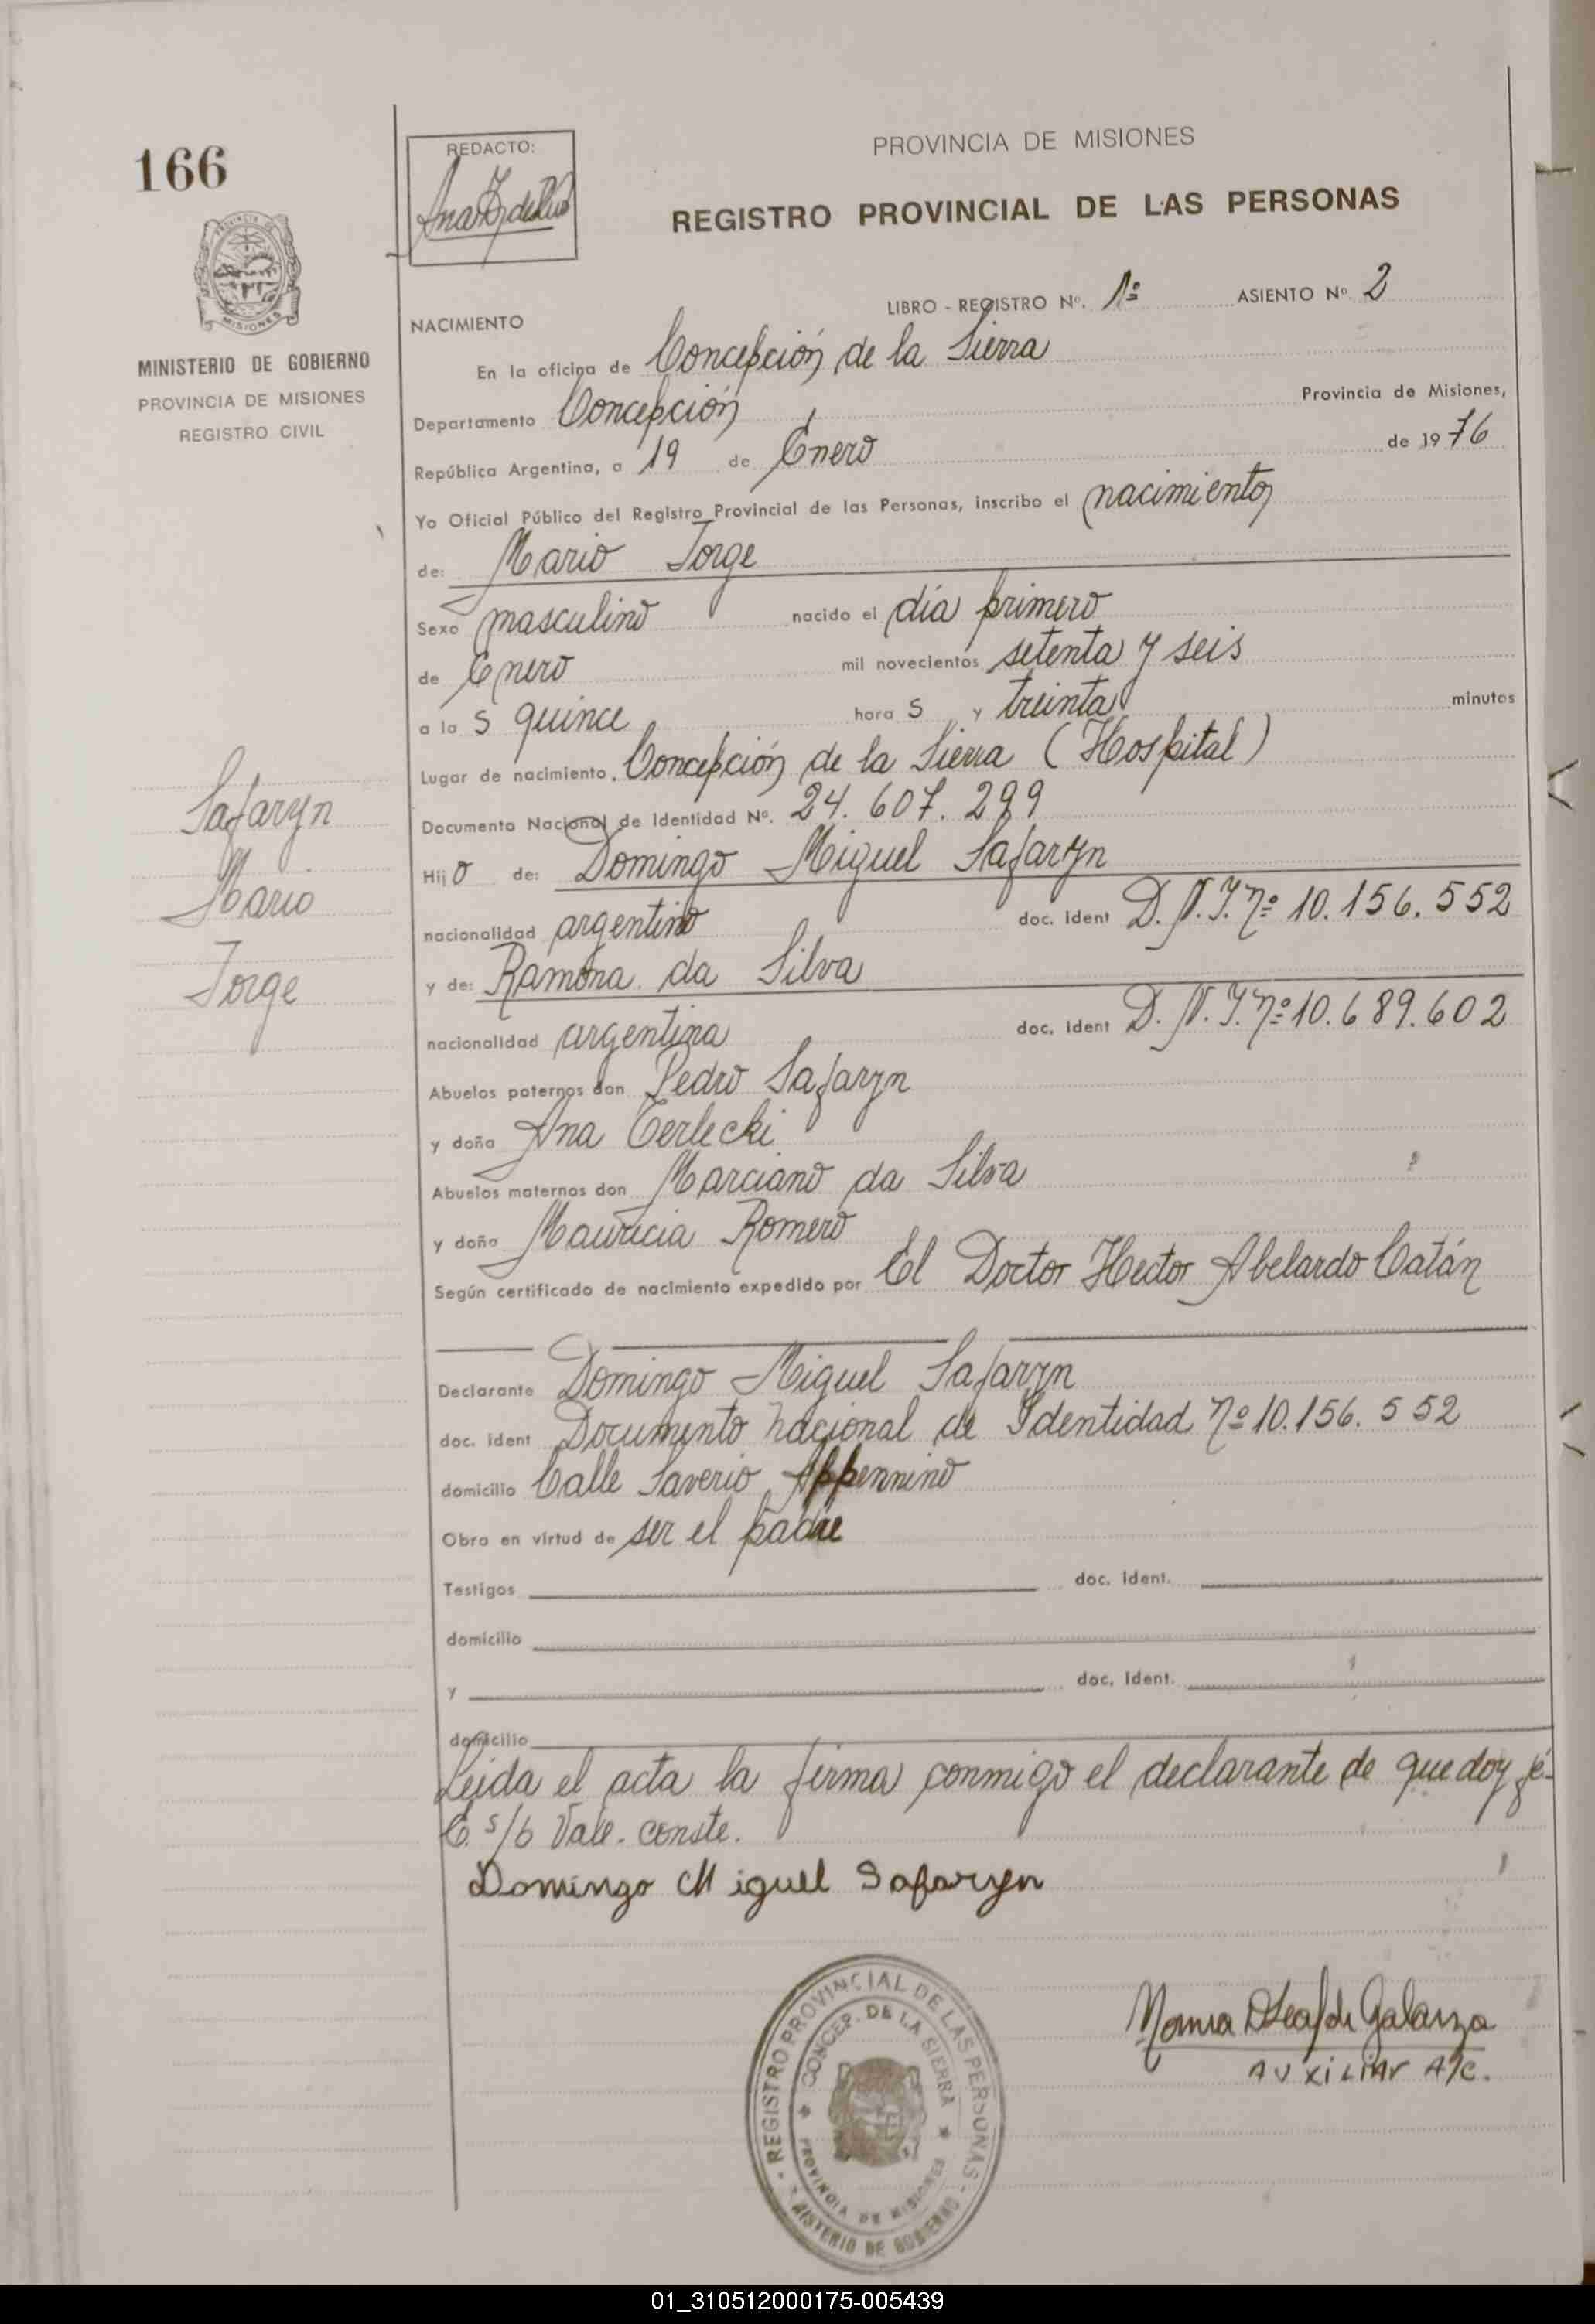 166
PROVINCIA DE MISIONES
REGISTRO PROVINCIAL DE LAS PERSONAS
REDACTO:
MISIONES
MINISTERIO DE GOBIERNO
PROVINCIA DE MISIONES
REGISTRO CIVIL
LIBRO - REGISTRO Nº. 1º ASIENTO Nº 2
NACIMIENTO
En la oficina de Concepción de la Sierra
Departamento Concepción Provincia de Misiones,
República Argentina, a 19 de Enero de 1976
Yo Oficial Público del Registro Provincial de las Personas, inscribo el nacimiento
de: Mario Jorge
Sexo masculino nacido el día primero
de Enero mil novecientos setenta y seis
a la s quince hora s y treinta minutos
Lugar de nacimiento. Concepción de la Sierra (Hospital)
Documento Nacional de Identidad Nº. 24.607.299
Hijo de: Domingo Miguel Safaryn
nacionalidad argentino doc. ident D.N.I. nº 10.156.552
y de: Ramona da Silva
nacionalidad argentina doc. ident D.N.I. nº 10.689.602
Abuelos paternos don Pedro Safaryn
y doña Ana Terlecki
Abuelos maternos don Marciano da Silva
y doña Mauricia Romero
Según certificado de nacimiento expedido por El Doctor Hector Abelardo Catán
Declarante Domingo Miguel Safaryn
doc. ident Documento nacional de Identidad nº 10.156.552
domicilio Calle Saverio Appennino
Obra en virtud de ser el padre
Testigos doc. ident.
domicilio
y doc. ident.
domicilio
Leida el acta la firma conmigo el declarante de que doy fé.
E. s/b Vale. conste.
Domingo Miguel Safaryn
Safaryn
Mario
Jorge
de Galarza
AUXILIAR A/C.
REGISTRO PROVINCIAL DE LAS PERSONAS
CONCEP. DE LA SIERRA
PROVINCIA DE MISIONES
MINISTERIO DE GOBIERNO
01_310512000175-005439